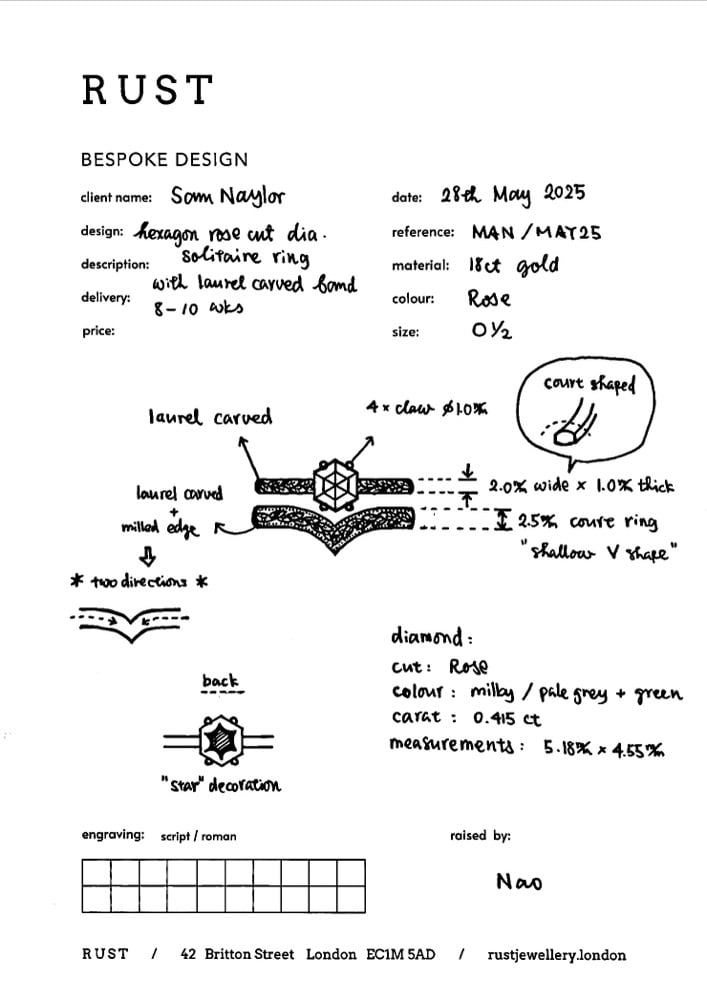 RUST
BESPOKE DESIGN
client name: Sam Naylor
date: 28th May 2025
design: hexagon rose cut dia.
reference: MAN / MAY25
description: solitaire ring
material: 18ct gold
with laurel carved band
delivery: 8-10 wks
colour: Rose
price:
size: O 1/2
court shaped
laurel carved
4 x claw ø1.0%
2.0% wide x 1.0% thick
laurel carved
+
milled edge
2.5% court ring
"shallow V shape"
* two directions *
diamond:
cut: Rose
colour: milky / pale grey + green
carat: 0.415 ct
measurements: 5.18% x 4.55%
back
"star" decoration
engraving: script / roman
raised by:
Nao
RUST / 42 Britton Street London EC1M 5AD / rustjewellery.london